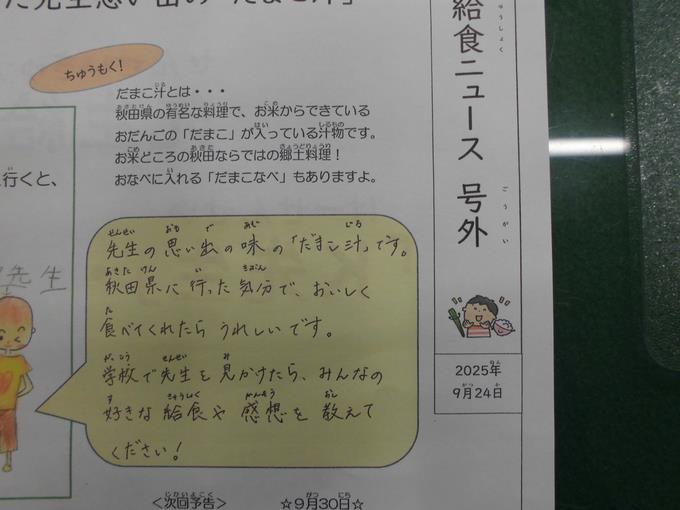 給食ニュース 号外
2025年
9月24日
た先生思い出の「だまこ汁」
ちゅうもく!
だまこ汁とは・・・
秋田県の有名な料理で、お米からできている
おだんごの「だまこ」が入っている汁物です。
お米どころの秋田ならではの郷土料理！
おなべに入れる「だまこなべ」もありますよ。
に行くと、
先生
先生の思い出の味の「だまこ汁」です。
秋田県に行った気分で、おいしく
食べてくれたらうれしいです。
学校で先生を見かけたら、みんなの
好きな給食や感想を教えて
ください!
＜次回予告＞ ☆9月30日☆